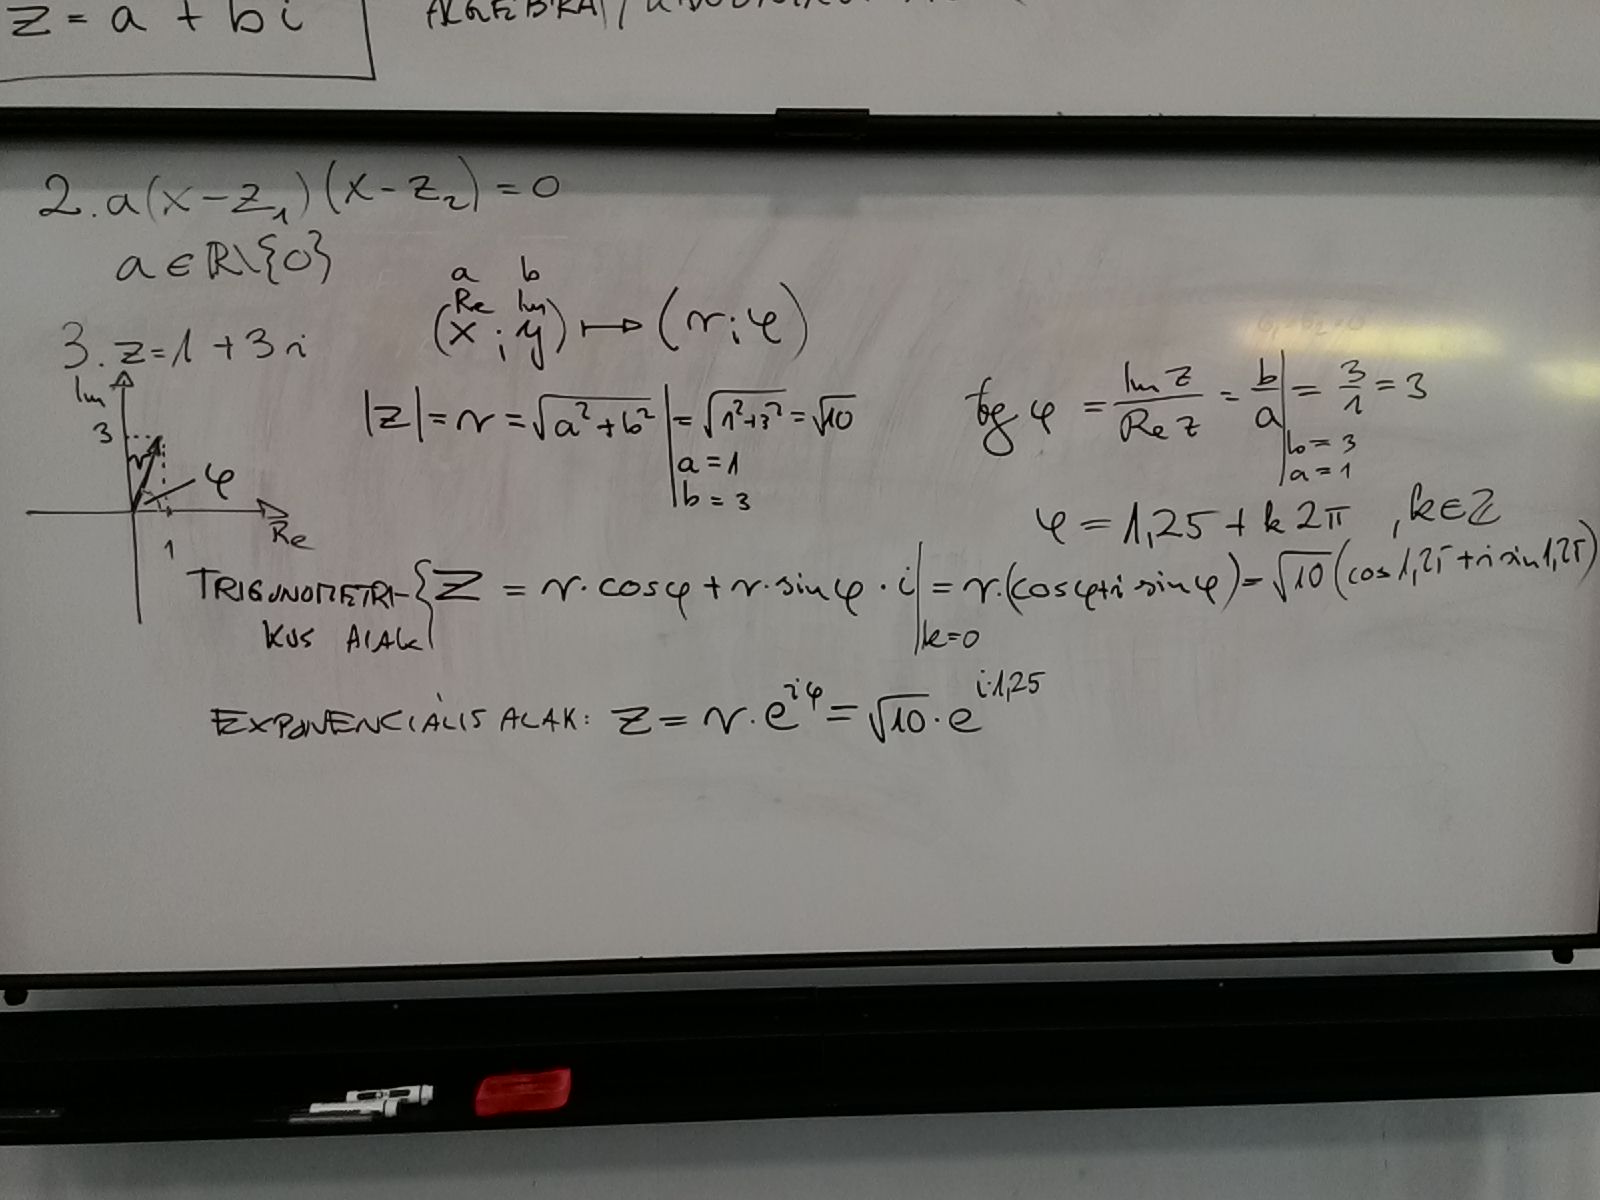 z = a + bi
2. a(x-z₁)(x-z₂)=0
a∈ℝ\{0}
a b
Re Im
(x ; y) ↦ (r;φ)
3. z=1+3i
Im
3
r
φ
Re
1
|z|=r=√(a²+b²)| = √(1²+3²) = √10
a=1
b=3
tg φ = Im z / Re z = b/a | = 3/1 = 3
b=3
a=1
φ = 1,25 + k2π , k∈ℤ
TRIGONOMETRI- { Z = r·cosφ + r·sinφ·i | = r·(cosφ+i sinφ) = √10 (cos1,25 + i sin1,25)
KUS ALAK k=0
EXPONENCIÁLIS ALAK: z = r·e^{iφ} = √10·e^{i·1,25}